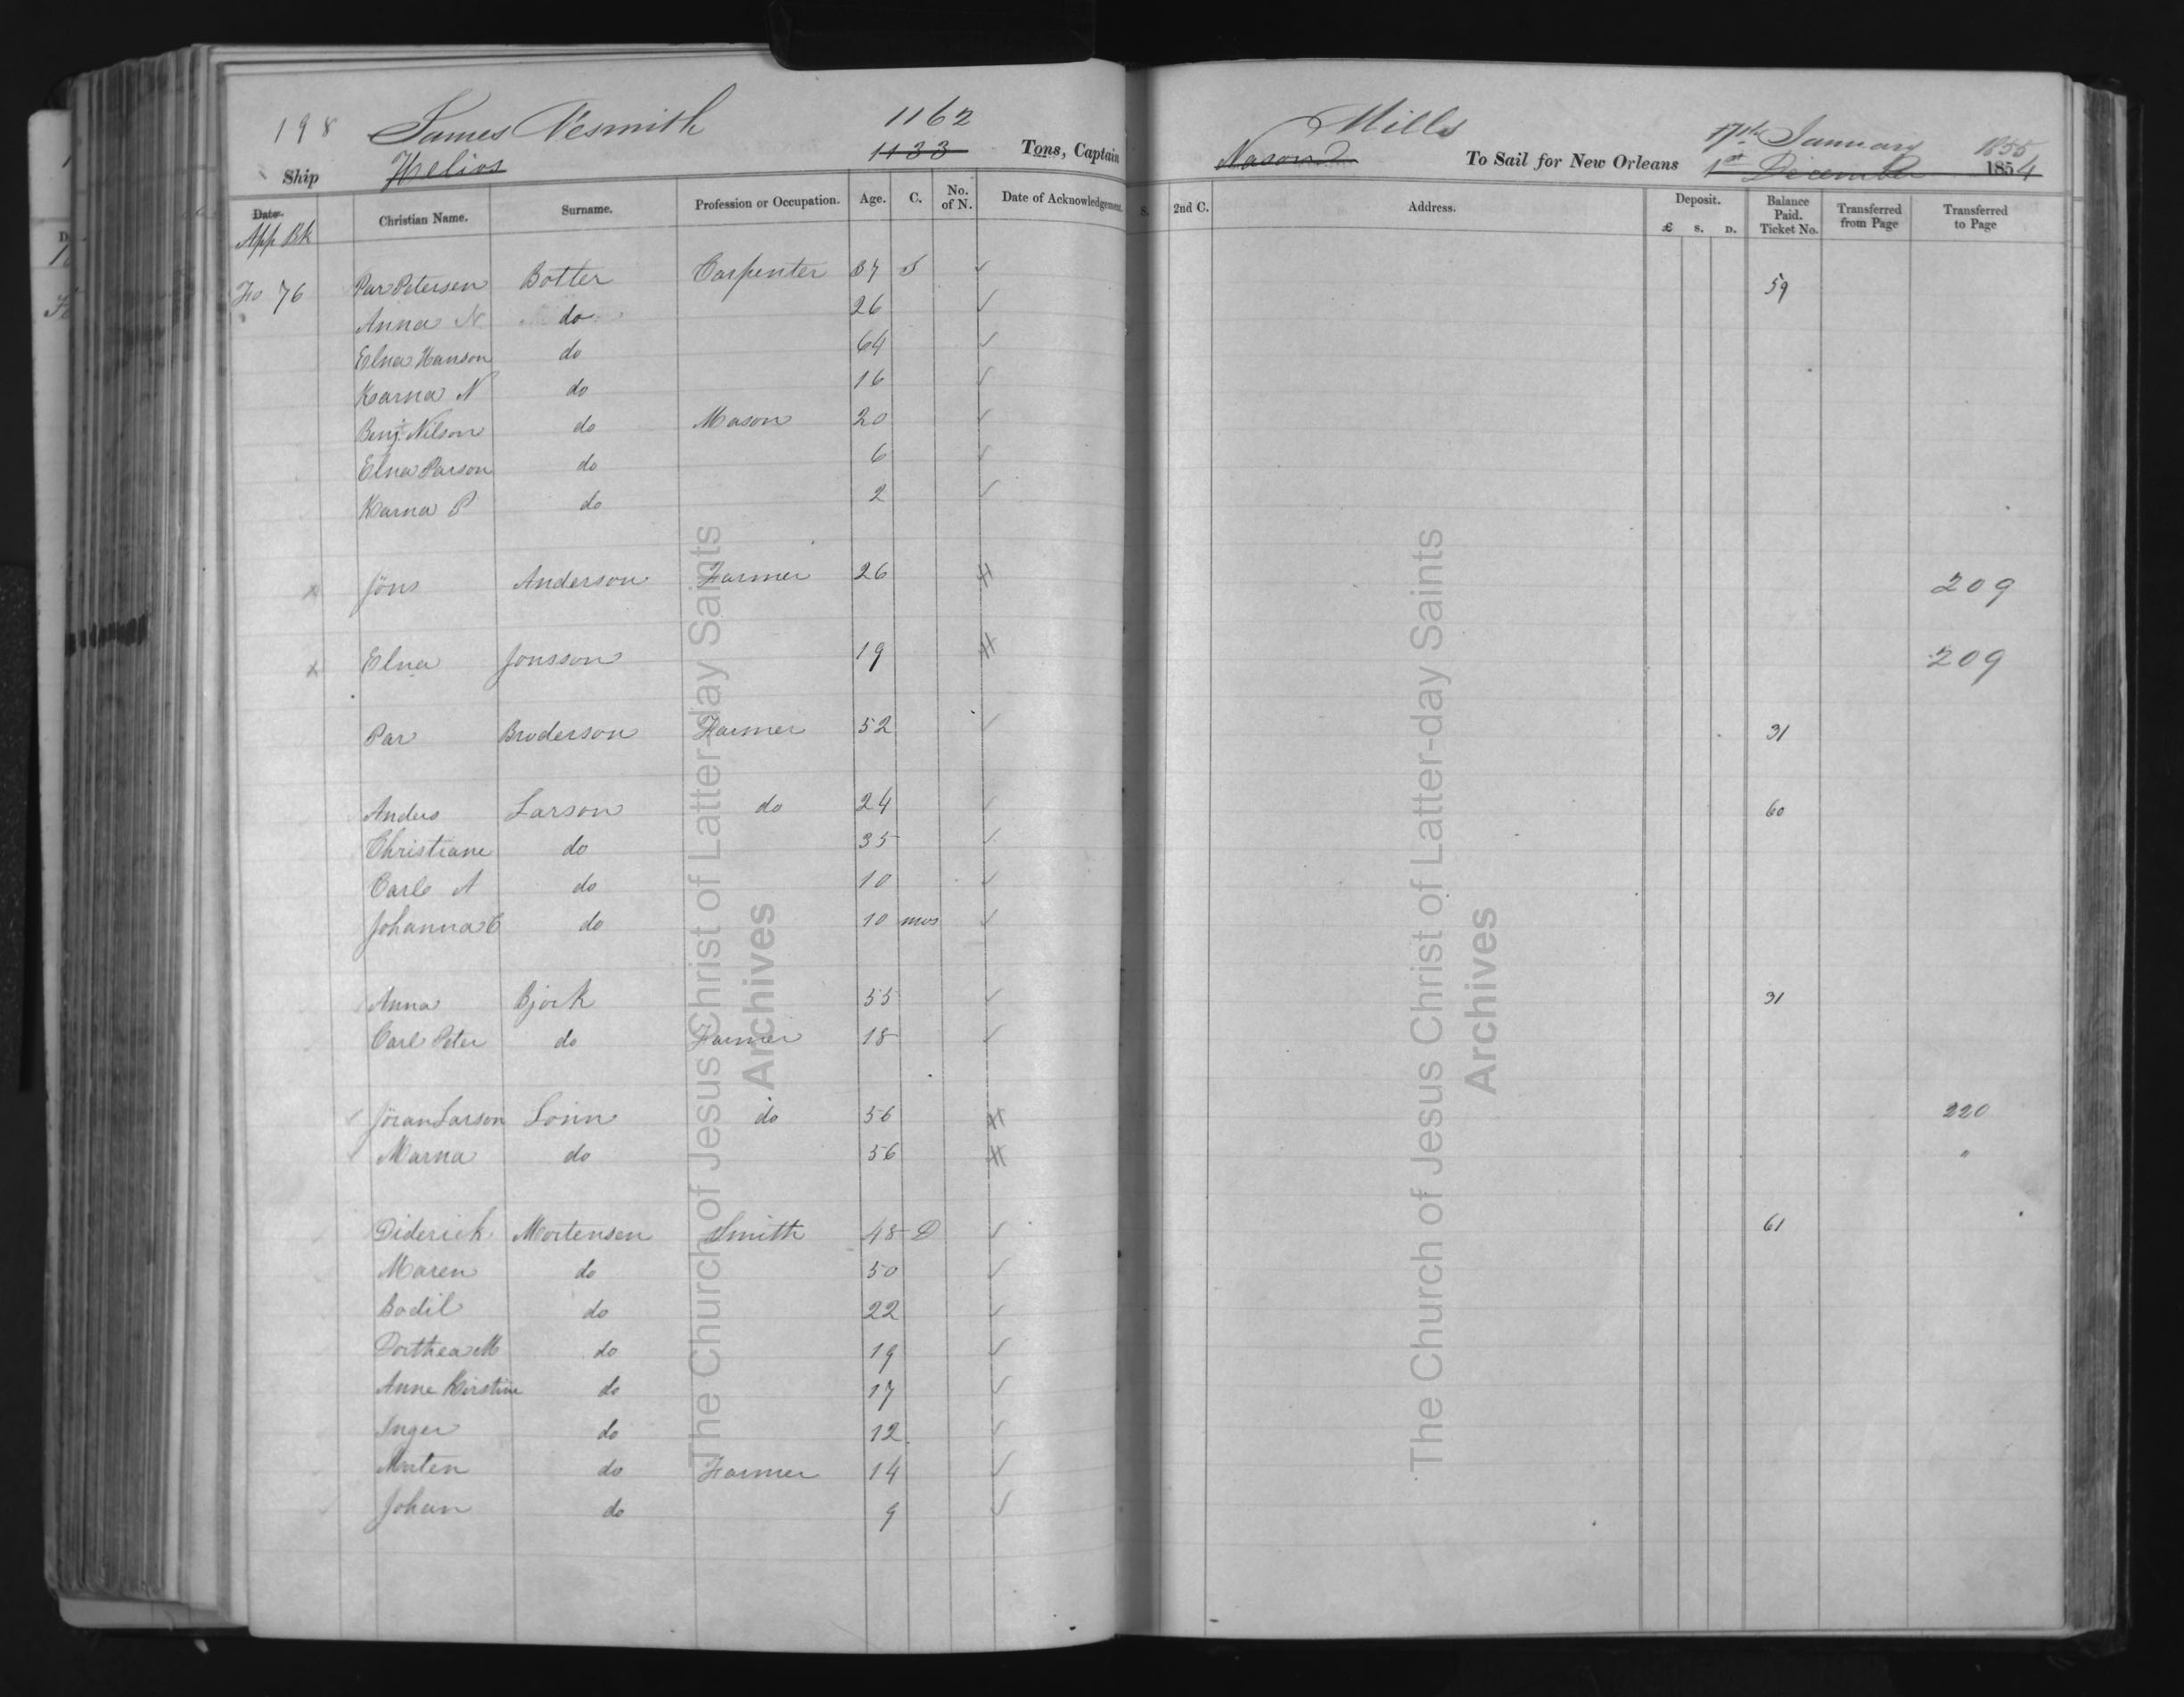 198 James Nesmith 1162 Mills 17th January 1855
Ship Helios 1133 Tons, Captain Nason To Sail for New Orleans 1st December 1854
Date. Christian Name. Surname. Profession or Occupation. Age. C. No. of N. Date of Acknowledgement. S. 2nd C. Address. Deposit. £ S. D. Balance Paid. Ticket No. Transferred from Page Transferred to Page
App Bk
Fo 76 Par Petersen Botter Carpenter 37 S ✓ 59
Anna N do 26 ✓
Elna Hanson do 64 ✓
Karna N do 16 ✓
Benj. Nilson do Mason 20 ✓
Elna Parson do 6 ✓
Karna P do 2 ✓
x Jöns Anderson Farmer 26 209
x Elna Jonsson 19 209
Par Broderson Farmer 52 ✓ 31
Anders Larson do 24 ✓ 60
Christiane do 35 ✓
Carl A do 10 ✓
Johanna C do 10 mos ✓
Anna Bjork 55 ✓ 31
Carl Peter do Farmer 18 ✓
Jöran Larson Lönn do 56 220
Marna do 56 "
Diderich Mortensen Smith 48 D ✓ 61
Maren do 50 ✓
Bodil do 22 ✓
Dorthea M do 19 ✓
Anne Kirstine do 17 ✓
Inger do 12 ✓
Morten do Farmer 14 ✓
Johan do 9 ✓
The Church of Jesus Christ of Latter-day Saints
Archives
The Church of Jesus Christ of Latter-day Saints
Archives